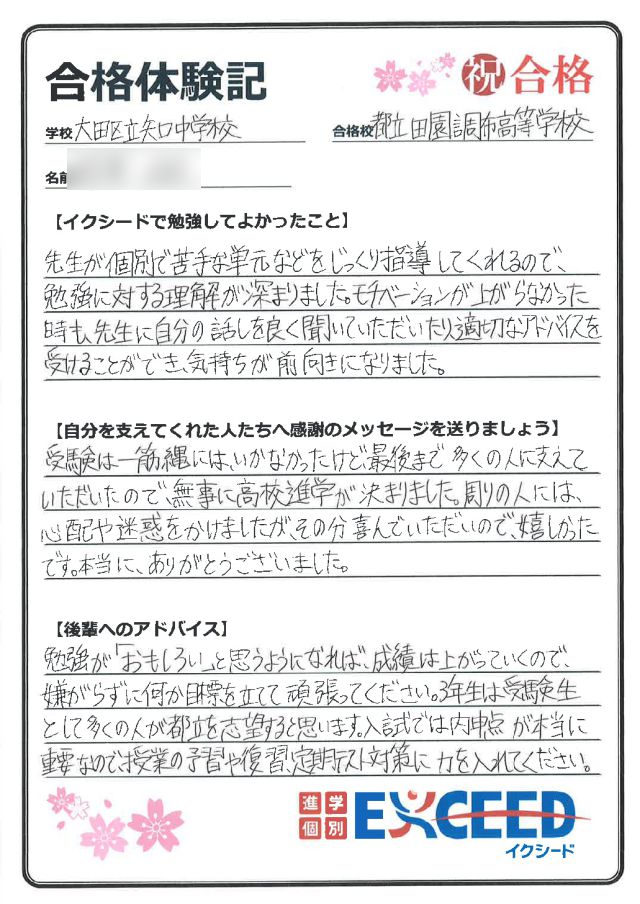 合格体験記
祝 合格
学校 大田区立矢口中学校
合格校 都立田園調布高等学校
名前
【イクシードで勉強してよかったこと】
先生が個別で苦手な単元などをじっくり指導してくれるので、
勉強に対する理解が深まりました。モチベーションが上がらなかった
時も、先生に自分の話しを良く聞いていただいたり、適切なアドバイスを
受けることができ、気持ちが前向きになりました。
【自分を支えてくれた人たちへ感謝のメッセージを送りましょう】
受験は一筋縄には、いかなかったけど最後まで多くの人に支えて
いただいたので、無事に高校進学が決まりました。周りの人には、
心配や迷惑をかけましたが、その分喜んでいただいので、嬉しかった
です。本当に、ありがとうございました。
【後輩へのアドバイス】
勉強が「おもしろい」と思うようになれば、成績は上がっていくので、
嫌がらずに何か目標を立てて頑張ってください。3年生は受験生
として多くの人が都立を志望すると思います。入試では内申点が本当に
重要なので授業の予習や復習、定期テスト対策に力を入れてください。
進学
個別
EXCEED
イクシード